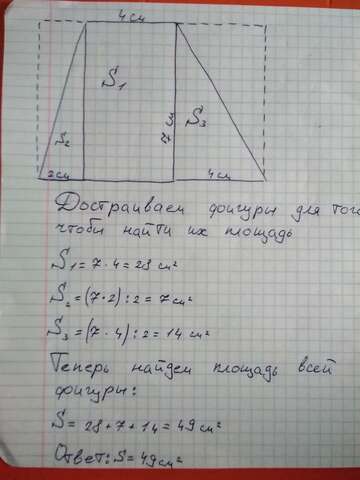 4см
S₁
S₂
7
3
S₃
2см
4см
Достраиваем фигуры для того
чтобы найти их площадь
S₁ = 7 · 4 = 28 см²
S₂ = (7 · 2) : 2 = 7 см²
S₃ = (7 · 4) : 2 = 14 см²
Теперь найдем площадь всей
фигуры:
S = 28 + 7 + 14 = 49 см²
Ответ: S = 49 см²